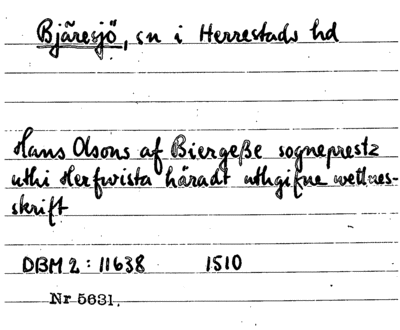 Bjäresjö, sn i Herrestads hd
Hans Olsons af Biergeße sogneprestz
uthi Herfwista häradt uthgifne wettnes-
skrift
DBM 2: 11638 1510
Nr 5631.